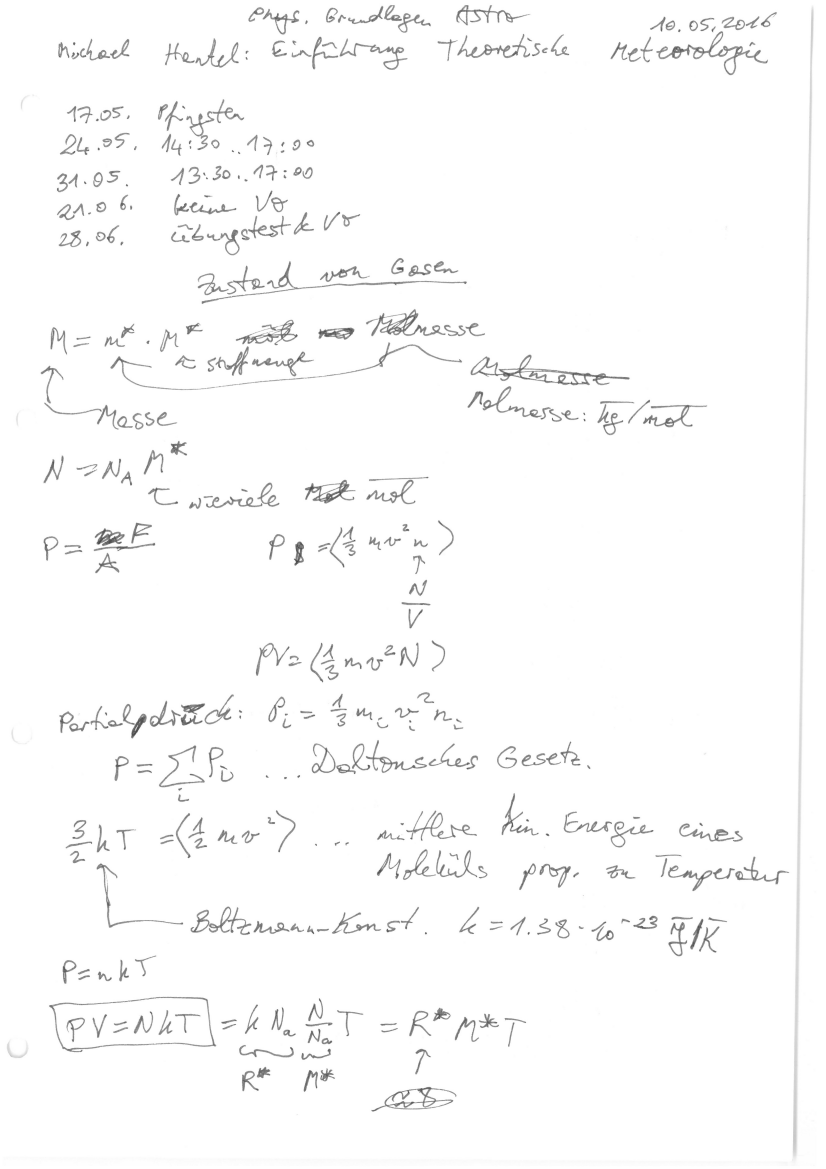 Phys. Grundlagen Astro
10.05.2016
Michael Hantel: Einführung Theoretische Meteorologie
17.05. Pfingsten
24.05. 14:30..17:00
31.05. 13:30..17:00
21.06. keine VO
28.06. Übungstest & VO
Zustand von Gasen
M = m* · M* Molmasse
τ Stoffmenge
Molmasse
Masse
Molmasse: kg/mol
N = N_A M*
τ wieviele mol
P = F/A P = ⟨1/3 mv² n⟩
↑
N/V
PV = ⟨1/3 mv² N⟩
Partialdruck: P_i = 1/3 m_i v_i² n_i
P = Σ_i P_i ... Daltonsches Gesetz.
3/2 kT = ⟨1/2 mv²⟩ ... mittlere kin. Energie eines
Moleküls prop. zu Temperatur
Boltzmann-Konst. k = 1.38 · 10⁻²³ J/K
P = nkT
PV = NkT = k N_a N/N_a T = R* M* T
R* M* ↑
28